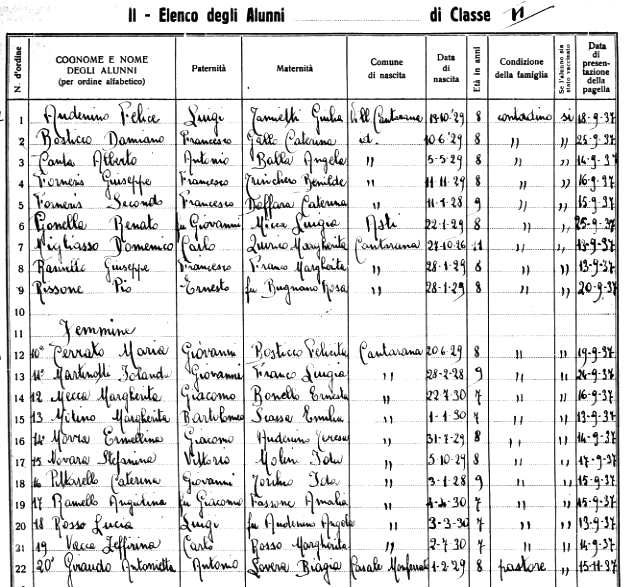 II - Elenco degli Alunni di Classe II
N. d'ordine COGNOME E NOME DEGLI ALUNNI (per ordine alfabetico) Paternità Maternità Comune di nascita Data di nascita Età in anni Condizione della famiglia Se l'alunno sia stato vaccinato Data di presentazione della pagella
1 Audenino Felice Luigi Giulia Cantarana 29 8 contadino si 18-9-37
2 Bosticco Damiano Francesco Gallo Caterina id. 10 6 '29 8 " " 25-9-37
3 Canta Alberto Antonio Balla Angela " 5-5-29 8 " " 14-9-37
4 Forneris Giuseppe Francesco Trinchero Benilde " 11-11-29 8 " " 16-9-37
5 Forneris Secondo Francesco Daffara Caterina " 11-1-28 9 " " 15-9-37
6 Gonella Renato fu Giovanni Micca Luigia Asti 22-1-29 8 " " 25-9-37
7 Migliasso Domenico Carlo Quirico Margherita Cantarana 27-10-26 11 " " 13-9-37
8 Giuseppe Francesco Franco Margherita " 28-1-29 8 " " 13-9-37
9 Rissone Pio Ernesto fu Bugnano Rosa " 28-1-29 8 " " 20-9-37
10
11 Femmine
12 10° Cerrato Maria Giovanni Bosticco Felicita Cantarana 20 6-29 8 " " 19-9-37
13 11° Martinotti Iolanda Giovanni Franco Luigia " 28-2-28 9 " " 24-9-37
14 12 Mecca Margherita Giacomo Bonello Ernesta " 22-7-30 7 " " 16-9-37
15 13 Mitino Margherita Bartolomeo Scassa Emilia " 1-1-30 7 " " 13-9-37
16 14° Morra Ermellina Giacomo Audenino Teresa " 31-7-29 8 " " 14-9-37
17 15 Novara Stefanina Vittorio Molin Ida " 5-10-29 8 " " 17-9-37
18 16 Pittarello Caterina Giovanni Ida " 3-1-28 9 " " 15-9-37
19 17 Ramello Angiolina fu Giacomo Fassone Amalia " 4-4-30 7 " " 15-9-37
20 18 Rosso Lucia Luigi fu Audenino Angela " 3-3-30 7 " " 13-9-37
21 19 Vacca Zeffirina Carlo Rosso Margherita " 2-7-30 7 " " 14-9-37
22 20° Giraudo Antonietta Antonio Lovera Biagia Casale Monferrato 1-2-29 8 pastore " 15-11-37